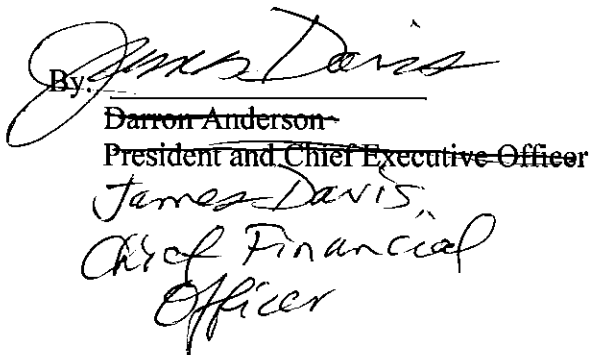 By: James Davis
Darron Anderson
President and Chief Executive Officer
James Davis,
Chief Financial
Officer